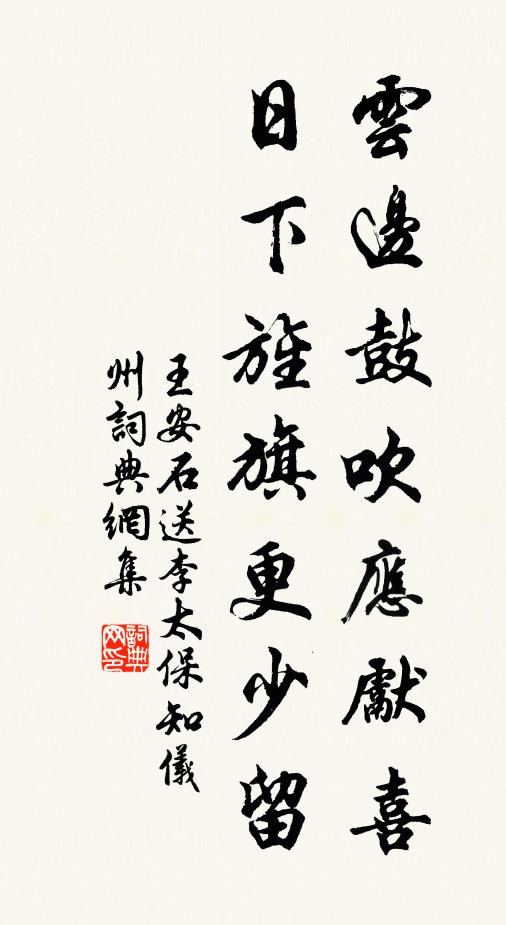 雲邊鼓吹應獻喜
日下旌旗更少留
王安石送李太保知儀
州詞典網集
詞典
网印